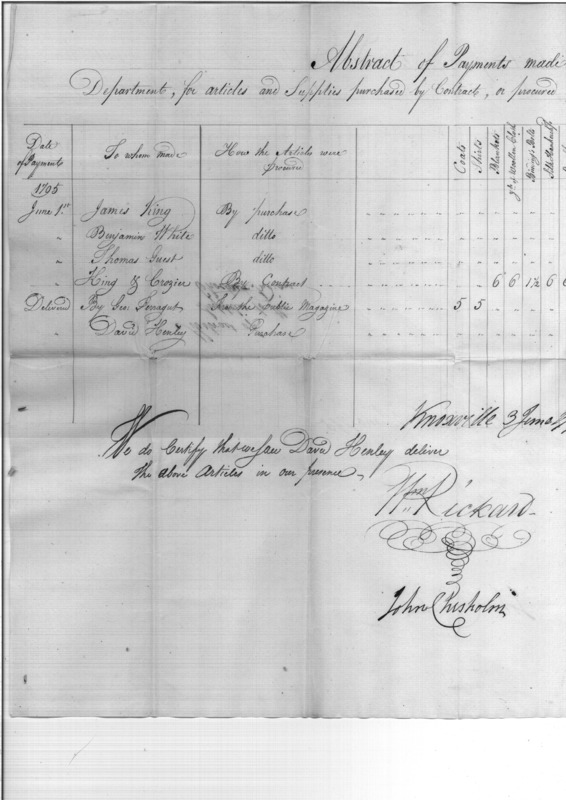 Abstract of Payments made
Department, for articles and Supplies purchased by Contract, or procured
Date of Payments
To whom made
How the Articles were procured
Coats
Shirts
Blankets
yds of Woollen Cloth
Silk Handkfs
1795
June 1st James King By purchase
" Benjamin White ditto
" Thomas Guest ditto
" King & Crozier By Contract 6 6 1½ 6 6
Delivered By Geo: Farragut from the public Magazine 5 5
" David Henley Purchase
Knoxville 3 June
We do Certify that we saw David Henley deliver
the above Articles in our presence,
Wm Rickard
John Chisholm